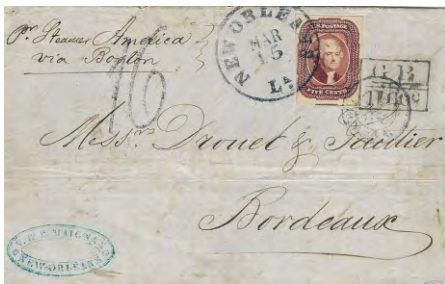 Pr. Steamer America
via Boston
NEW ORLEANS
MAR
15
LA
U.S. POSTAGE
FIVE CENTS
16
G.B.
1F60c
Messrs. Drouet &
Bordeaux
NEW-ORLEANS